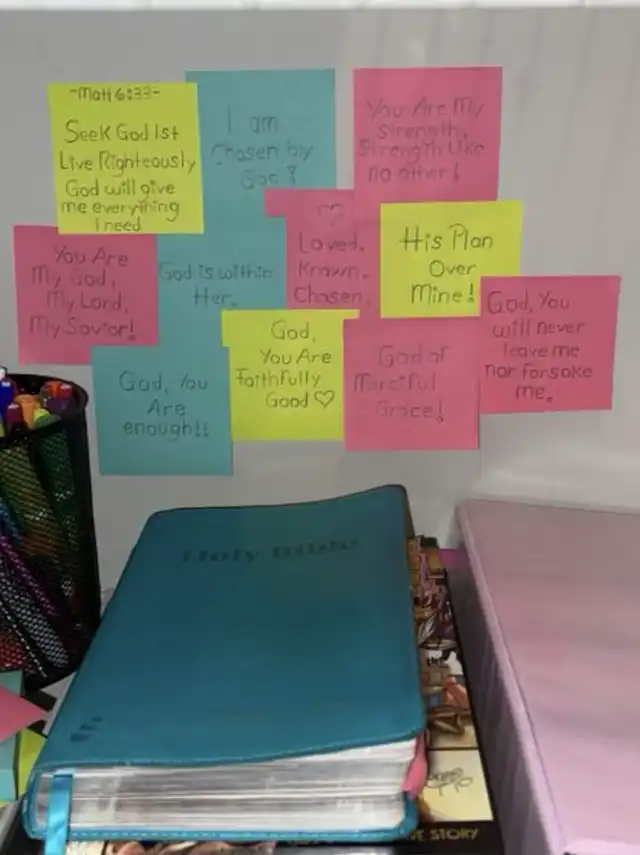 -Matt 6:33-
Seek God 1st
Live Righteously
God will give
me everything
I need
I am
Chosen by
God!
You Are My
Strength,
Strength like
no other!
You Are
My God,
My Lord,
My Savior!
God is within
Her.
♡
Loved.
Known.
Chosen.
His Plan
Over
Mine!
God, You
will never
leave me
nor forsake
me.
God, You
Are
enough!!
God,
You Are
Faithfully
Good ♡
God of
Merciful
Grace!
Holy Bible
STORY